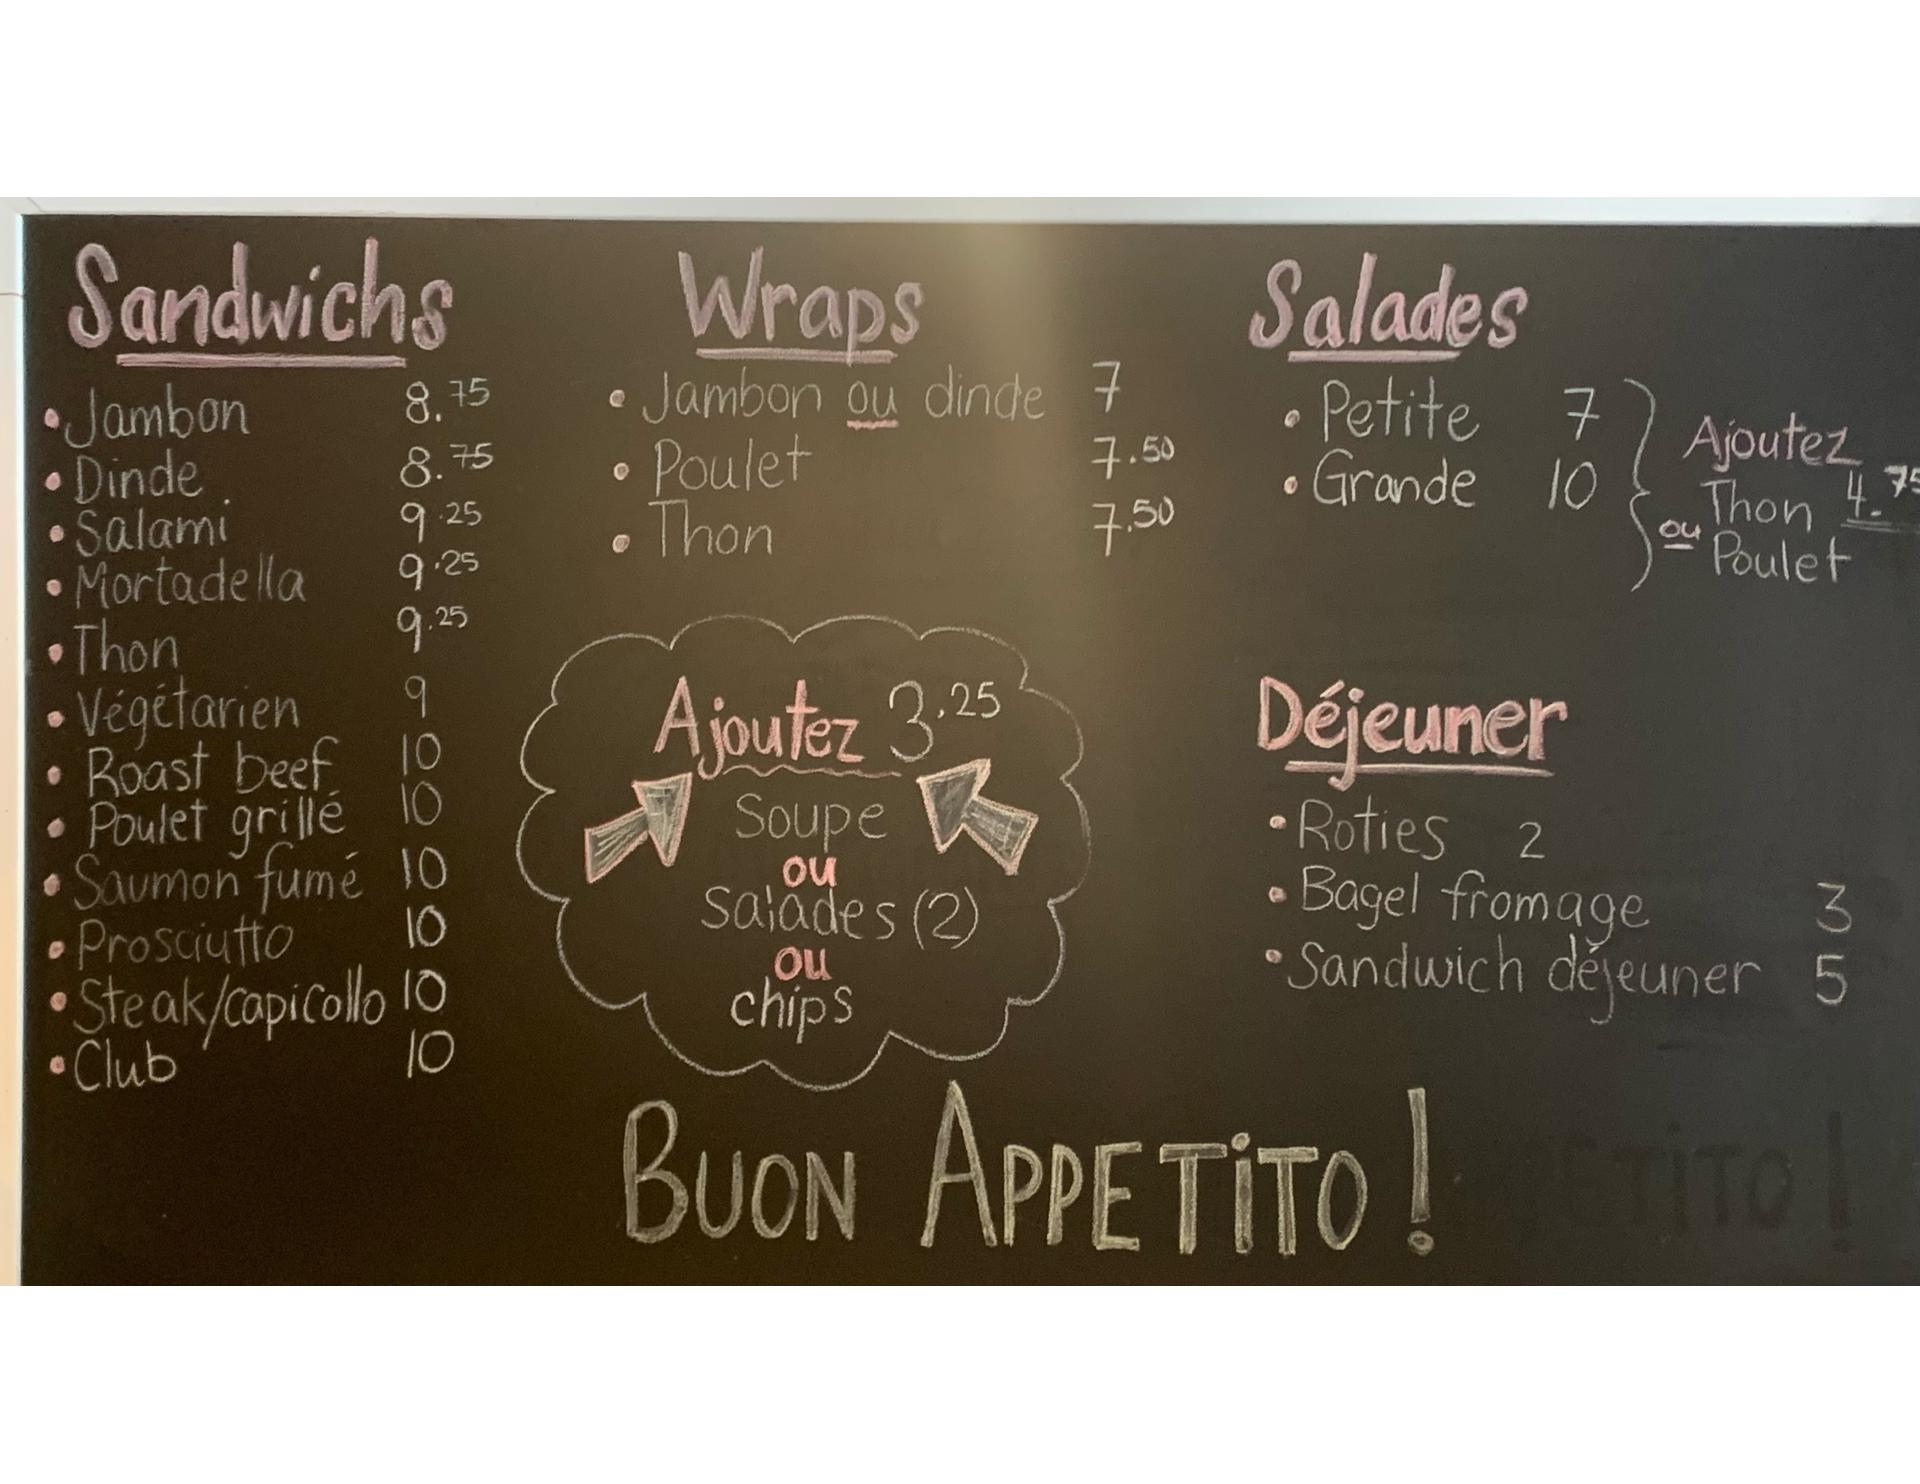 Sandwichs
Jambon 8.75
Dinde 8.75
Salami 9.25
Mortadella 9.25
Thon 9.25
Végétarien 9
Roast beef 10
Poulet grillé 10
Saumon fumé 10
Prosciutto 10
Steak/capicollo 10
Club 10
Wraps
Jambon ou dinde 7
Poulet 7.50
Thon 7.50
Ajoutez 3.25
Soupe
ou
Salades (2)
ou
chips
Salades
Petite 7
Grande 10
Ajoutez
Thon 4.75
ou
Poulet
Déjeuner
Roties 2
Bagel fromage 3
Sandwich déjeuner 5
BUON APPETiTO !
ETiTO !